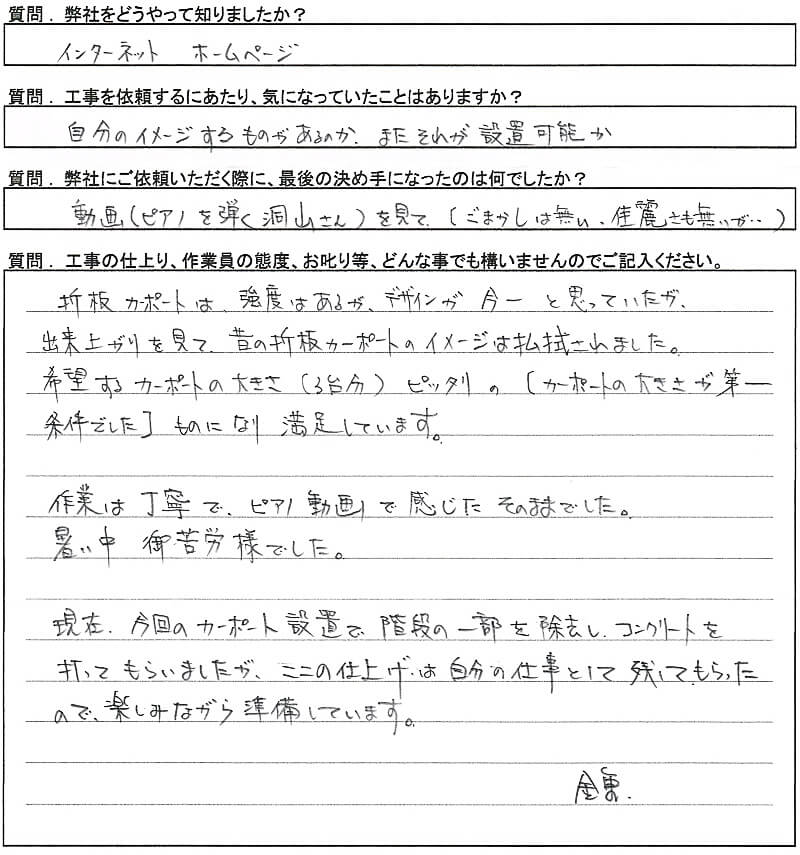 質問．弊社をどうやって知りましたか？
インターネット ホームページ
質問．工事を依頼するにあたり、気になっていたことはありますか？
自分のイメージするものがあるのか、またそれが設置可能か
質問．弊社にご依頼いただく際に、最後の決め手になったのは何でしたか？
動画（ピアノを弾く洞山さん）を見て、（ごまかしは無い、佳麗さも無いが‥）
質問．工事の仕上り、作業員の態度、お叱り等、どんな事でも構いませんのでご記入ください。
折板カーポートは、強度はあるが、デザインが今一と思っていたが、
出来上がりを見て、昔の折板カーポートのイメージは払拭されました。
希望するカーポートの大きさ（3台分）ピッタリの［カーポートの大きさが第一
条件でした］ものになり満足しています。
作業は丁寧で、ピアノ動画で感じたそのままでした。
暑い中 御苦労様でした。
現在、今回のカーポート設置で、階段の一部を除去し、コンクリートを
打ってもらいましたが、ここの仕上げは自分の仕事として残してもらった
ので、楽しみながら準備しています。